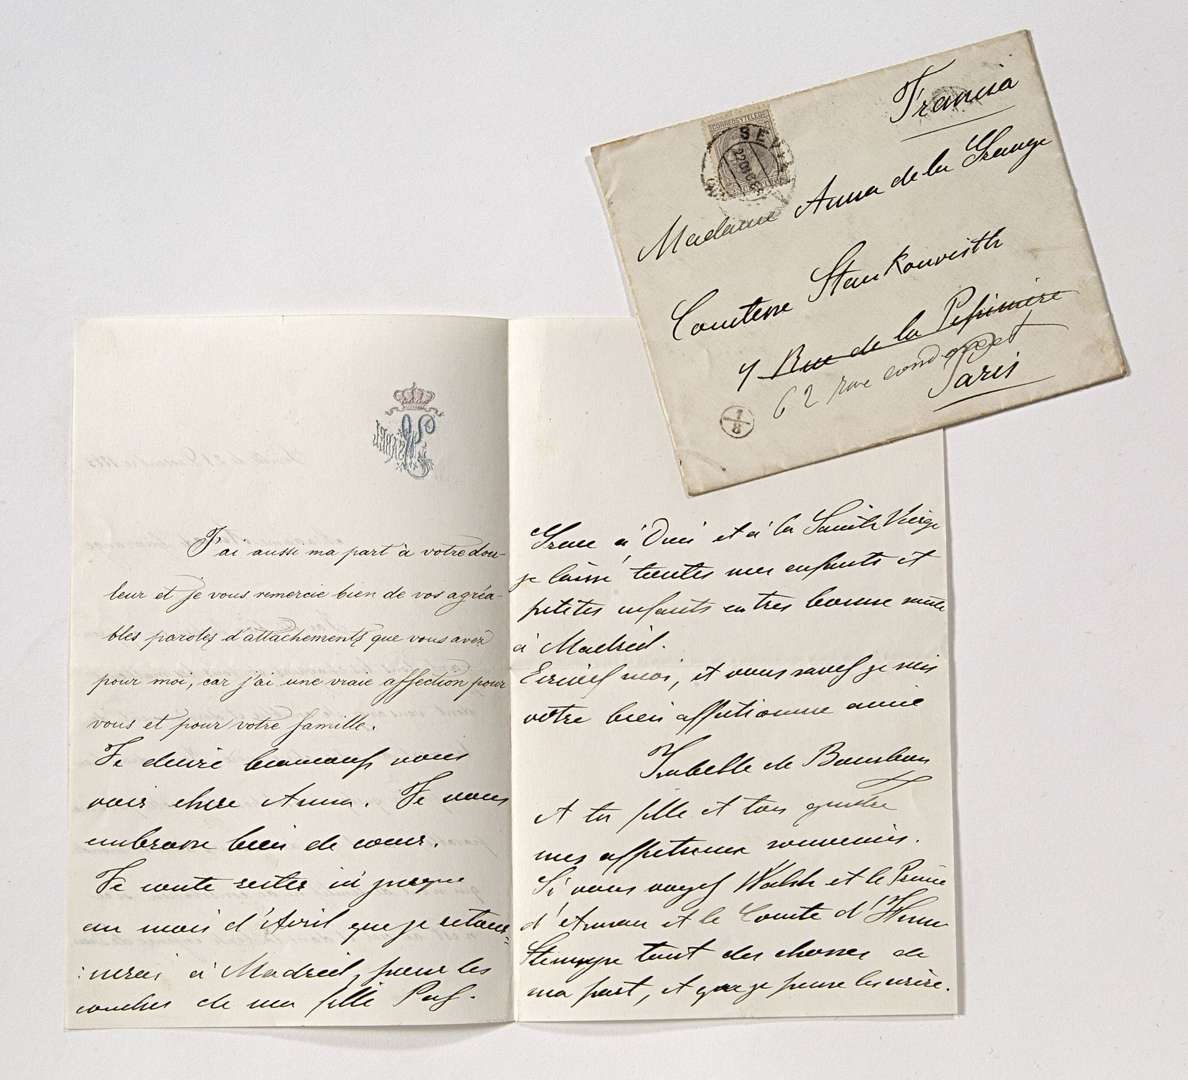 Francia
CORREOS Y TELEGS
SEVILLA
Madame Anna de la Grange
Comtesse Stankowisth
7 Rue de la Pépinière
62 rue condorcet
Paris
1/8
ISABEL
J'ai aussi ma part à votre dou-
leur et je vous remercie bien de vos agréa-
bles paroles d'attachements que vous avez
pour moi, car j'ai une vraie affection pour
vous et pour votre famille.
Je désire beaucoup vous
voir chère Anna. Je vous
embrasse bien de cœur.
Je conte rester ici jusque
au mois d'Avril que je retour=
=nerai à Madrid, pour les
couches de ma fille Paz.
Grace à Dieu et à la Sainte Vierge
je laissé toutes mes enfants et
petites enfants en tres bonne
à Madrid.
Ecrivez moi, et vous savez je suis
votre bien affectionnee amie
Isabelle de Bourbon
A ta fille et ton gendre
mes affectueux souvenirs.
Si vous voyez Walsh et le Prince
d' et le Comte d'
tout des choses de
ma part, et que je pense les écrire.